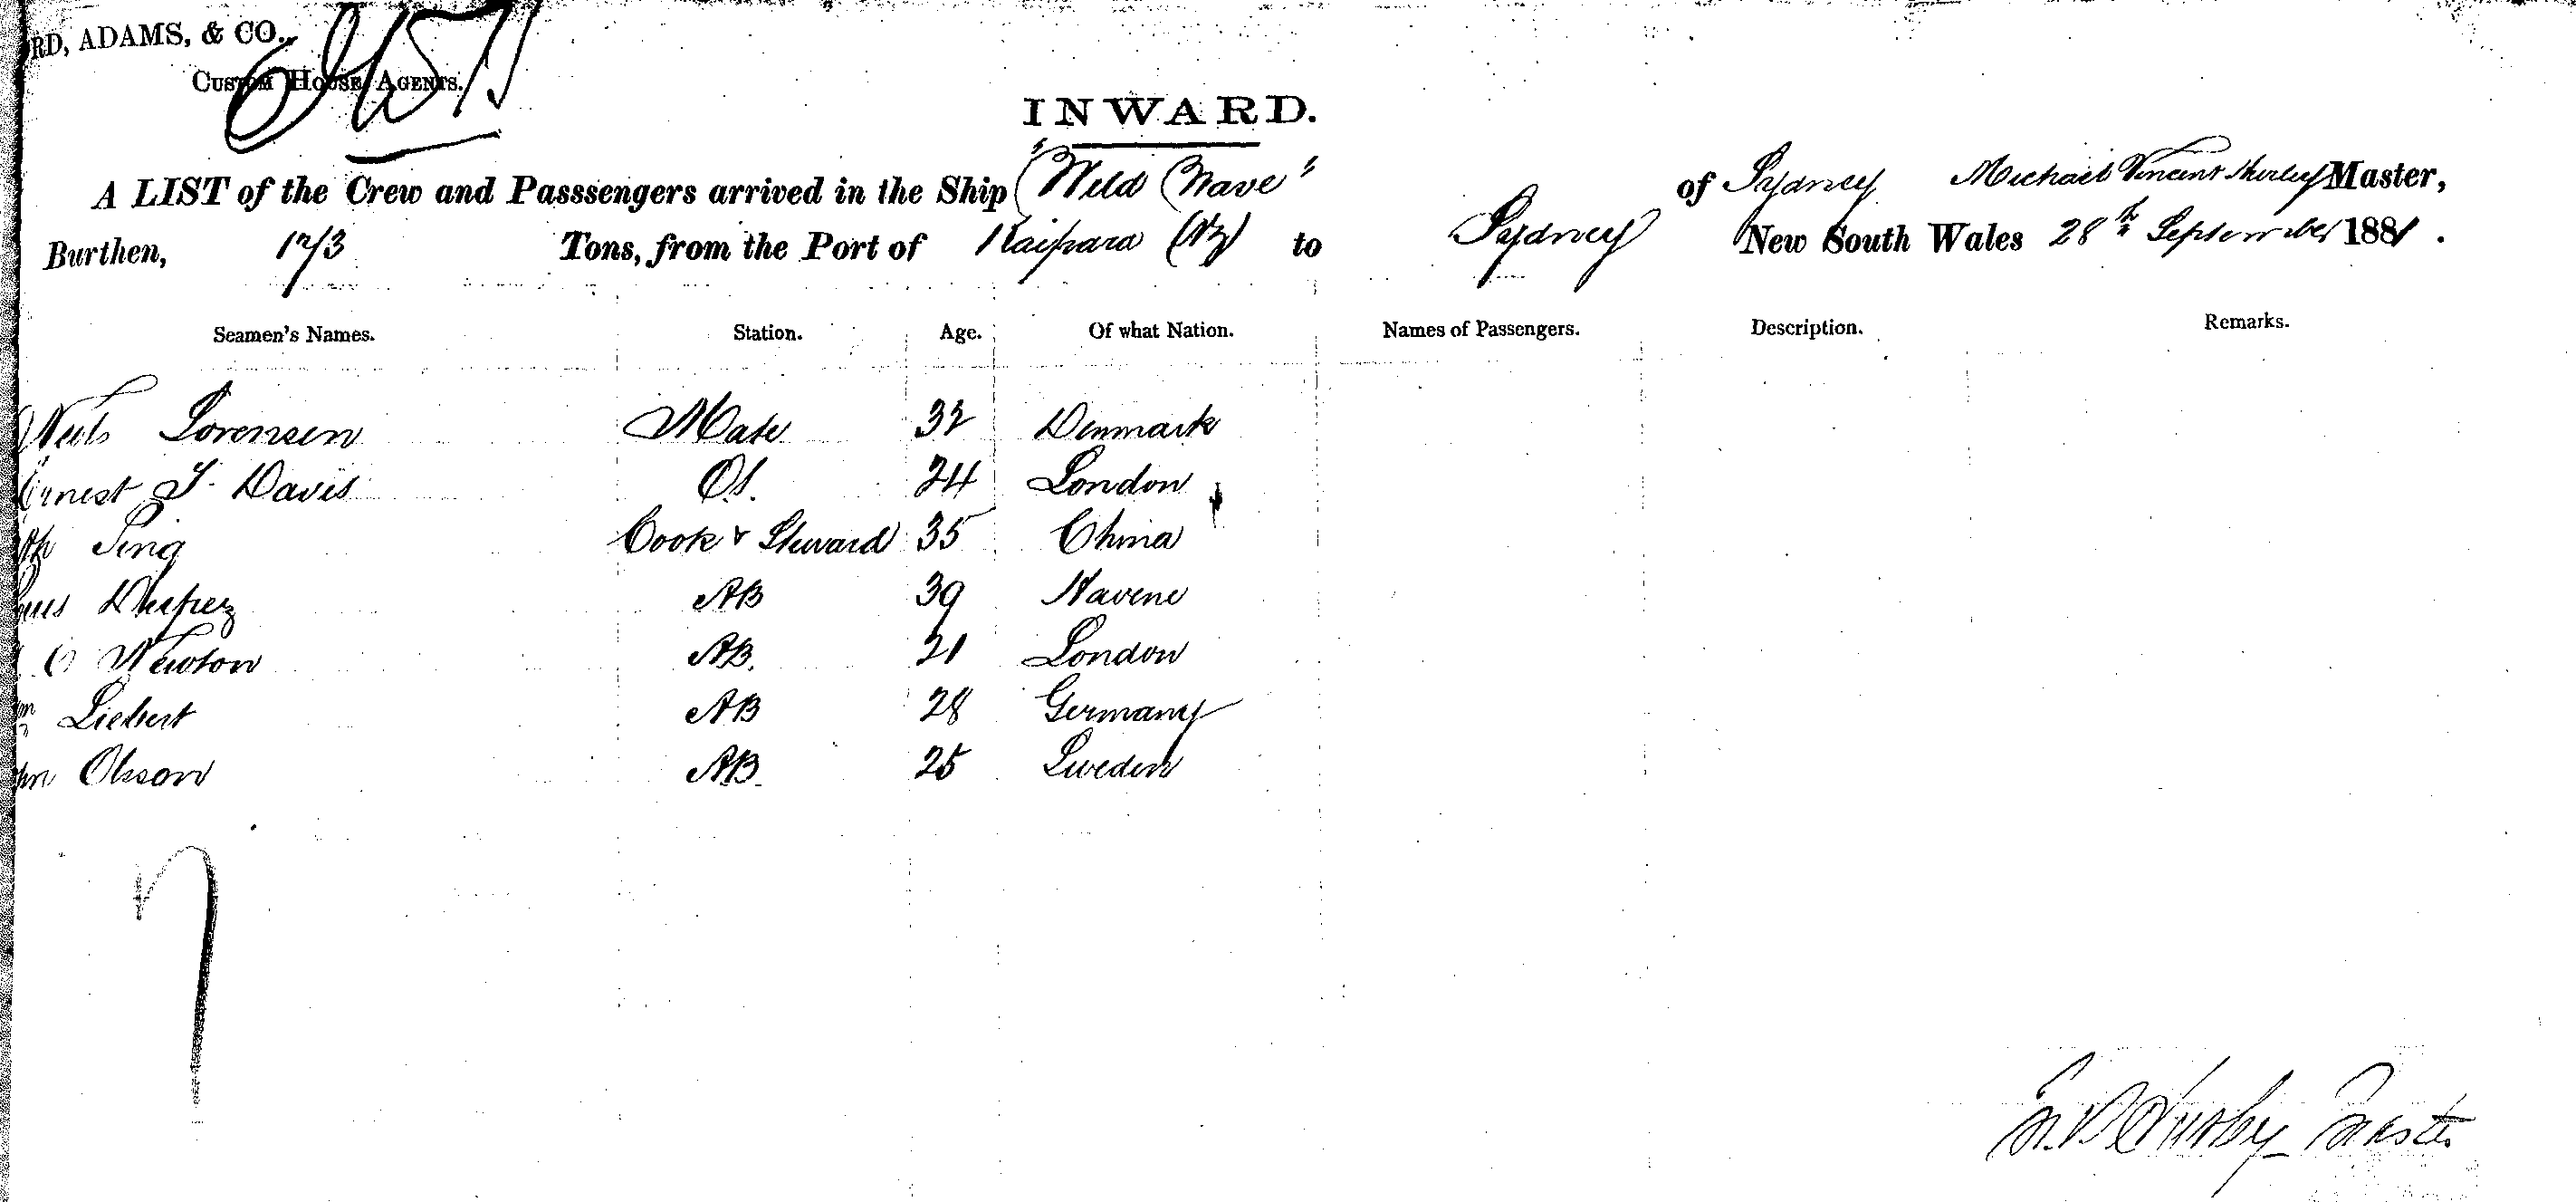 RD, ADAMS, & CO.,
CUSTOM HOUSE AGENTS.
INWARD.
A LIST of the Crew and Passsengers arrived in the Ship "Wild Wave" of Sydney Michael Vincent Master,
Burthen, 173 Tons, from the Port of Kaipara (NZ) to Sydney New South Wales 28th September 1881.
Seamen's Names. Station. Age. Of what Nation. Names of Passengers. Description. Remarks.
Neils Sorensen Mate 32 Denmark
Ernest J. Davis OS. 24 London
Ah Sing Cook & Steward 35 China
AB 39
C Newton AB. 21 London
Wm Liebert AB 28 Germany
John Olsson AB. 25 Sweden
7
Master